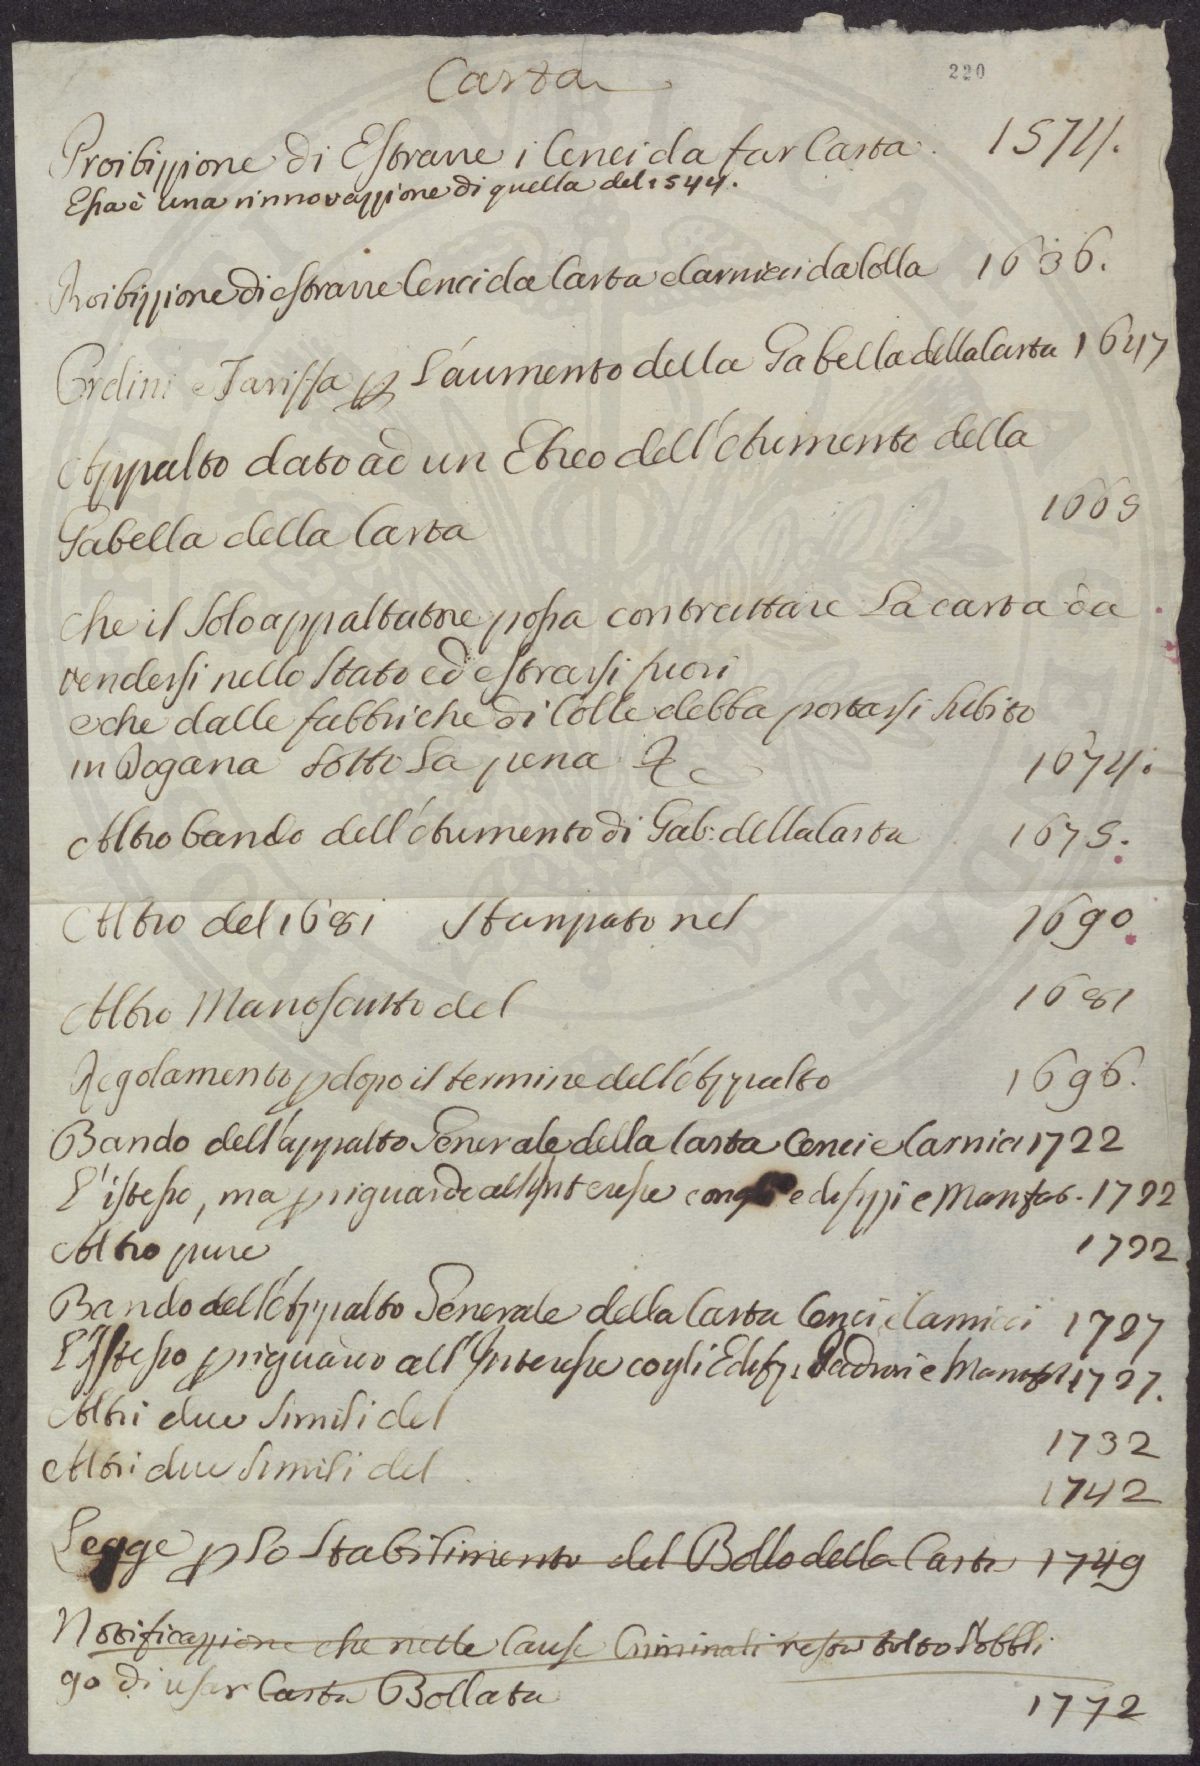 220
Carta
Proibizzione di Estrarre i Cenci da far Carta. 1574.
Essa è una rinnovazzione di quella del 1544.
Proibizzione di estrarre Cenci da Carta e Carnicci da Colla 1636.
Ordini e Tariffa p L'aumento della Gabella della Carta 1647
Appalto dato ad un Ebreo dell'Aumento della
Gabella della Carta 1669
Che il Solo appaltatore possa contrattare La carta da
vendersi nello Stato ed estrarsi fuori
e che dalle fabbriche di Colle debba portarsi Subito
in Dogana Sotto La pena &c 1674.
Altro bando dell'Aumento di Gab: della Carta 1675.
Altro del 1681 Stampato nel 1690.
Altro Manoscritto del 1681
Regolamento p dopo il termine dell'Appalto 1696.
Bando dell'appalto Generale della Carta Cenci e Carnicci 1722
L'istesso, ma p riguardo all'Interesse con edifizzi e Manifat. 1722
Altro pure 1722
Bando dell'Appalto Generale della Carta Cenci e Carnicci 1727
L'Istesso p riguardo all'Interesse cogli Edifzi Padroni e 1727.
Altri due Simili del 1732
Altri due Simili del 1742
Legge p Lo Stabilimento del Bollo della Carta 1749
Notificazzione che nelle Cause Criminali resta tolto L'obbli
go di usar Carta Bollata 1772